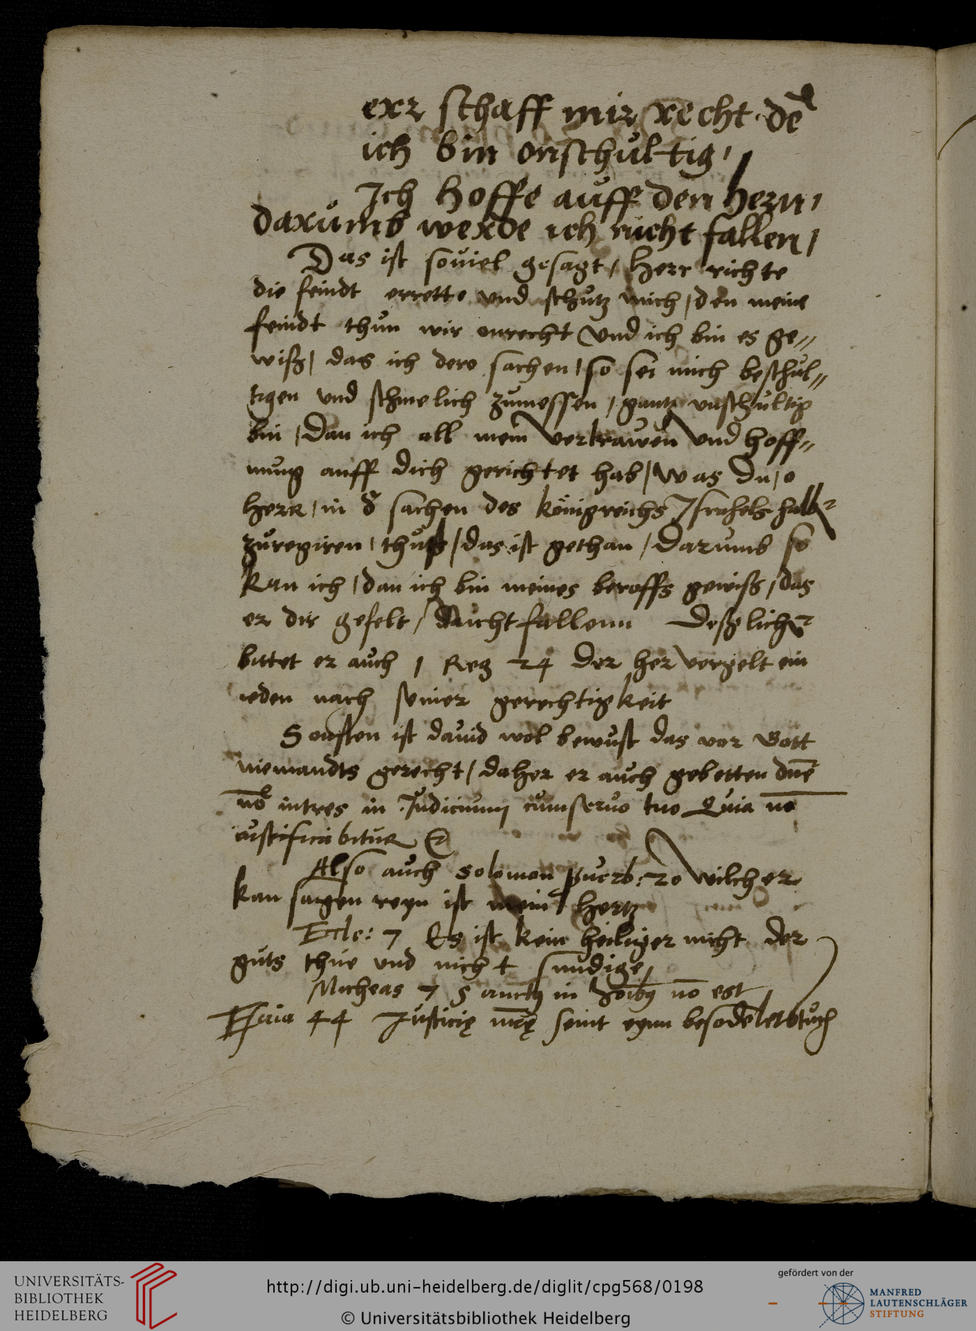 exr schaff mir recht de
ich bin onschultig,
Ich hoffe auff den hern,
darumb werde ich nicht fallen,
Das ist souiel gesagt, Herr richte
die feindt errette vnd schutz mich, den meine
feindt thun wir onrecht vnd ich bin es ge=
wiß, das ich dere sachen, so sei mich beschul=
tigen vnd schmelich zumessen, gantz vnschultig
bin, dan ich all mein vertrawen vnd hoff=
nung auff dich gerichtet hab, was du, o
herr, in d sachen des königreichs Israhels halb
zuregiren, thust, das ist gethan, darumb so
kan ich, dan ich bin meines beroffs gewiß, das
er dir gefelt, nicht fallenn deßlich
bittet er auch 1 Reg 24 der her vergelt ein
ieden nach seiner gerechtigkeit
Sonsten ist dauid wol bewust das vor Gott
niemandts gerecht, daher er auch gebetten dne
no intres in Judicium cum seruo tuo Quia no
iustificabitur
Also auch Solomon puerb: 20 wilcher
kan sagen reyn ist mein hertz
Eccle: 7 Es ist kein heiliger nicht der
guts thue vnd nicht sundige,
Micheas 7 in no est
Esaia 44 Justicie nre seint eynn
http://digi.ub.uni-heidelberg.de/diglit/cpg568/0198
© Universitätsbibliothek Heidelberg
UNIVERSITÄTS-
BIBLIOTHEK
HEIDELBERG
gefördert von der
MANFRED
LAUTENSCHLÄGER
STIFTUNG